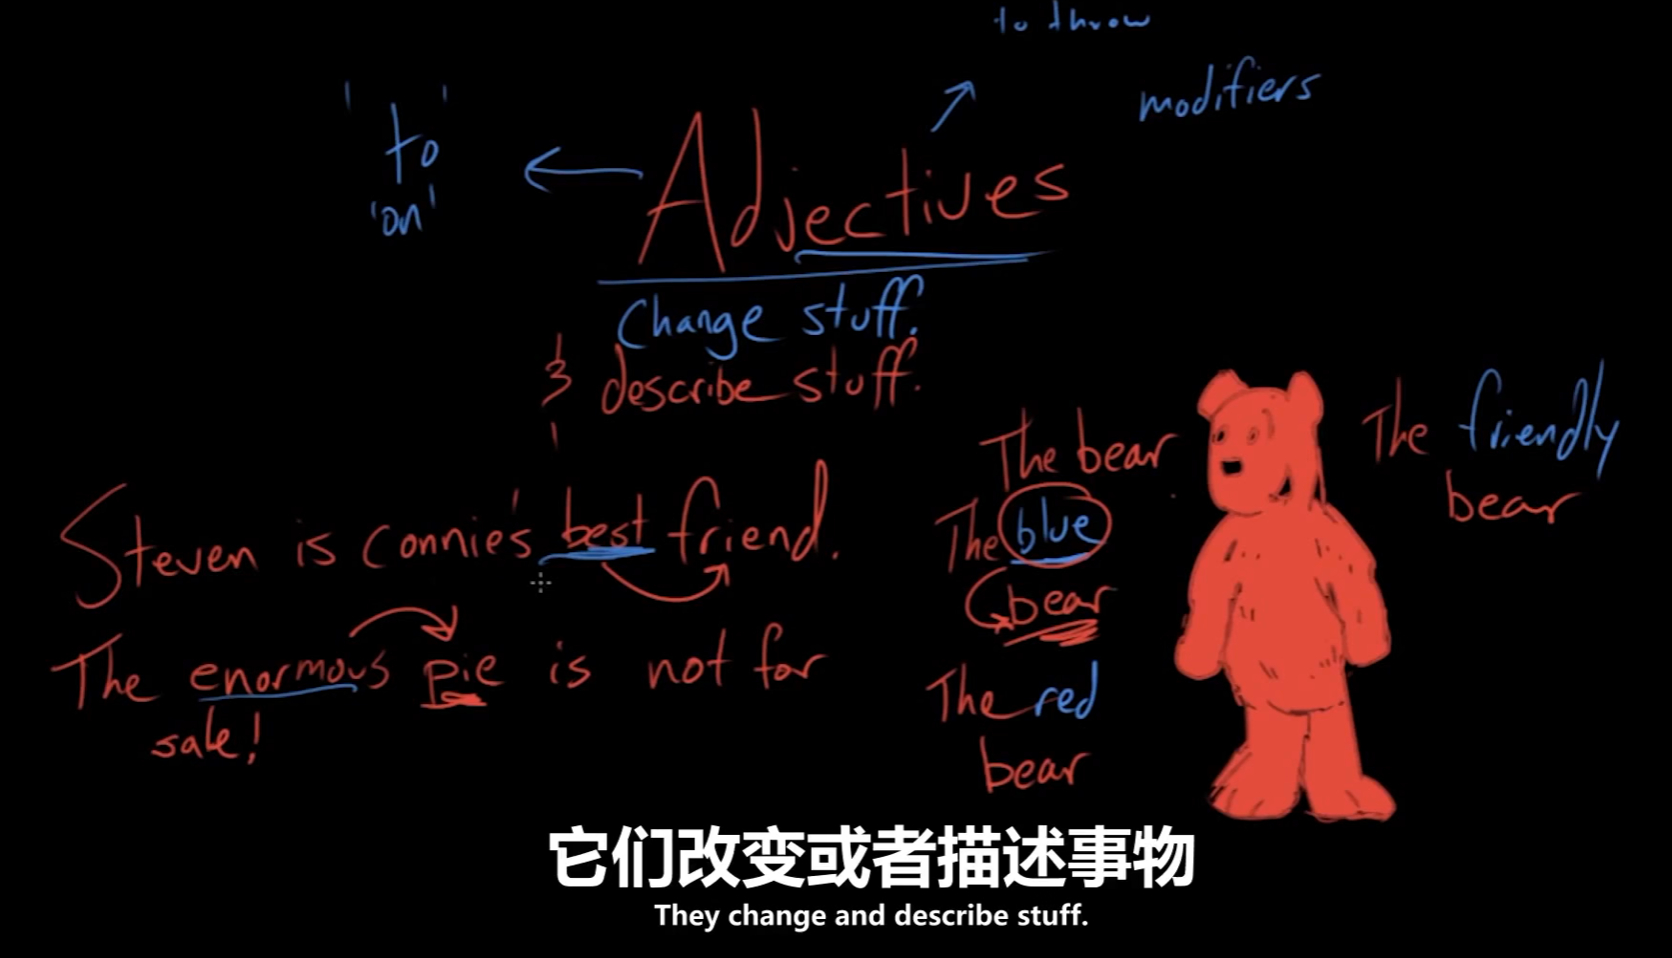 to throw
modifiers
'to'
'on'
Adjectives
Change stuff.
& describe stuff.
Steven is Connie's best friend.
The enormous pie is not for
sale!
The bear
The blue
bear
The red
bear
The friendly
bear
它们改变或者描述事物
They change and describe stuff.